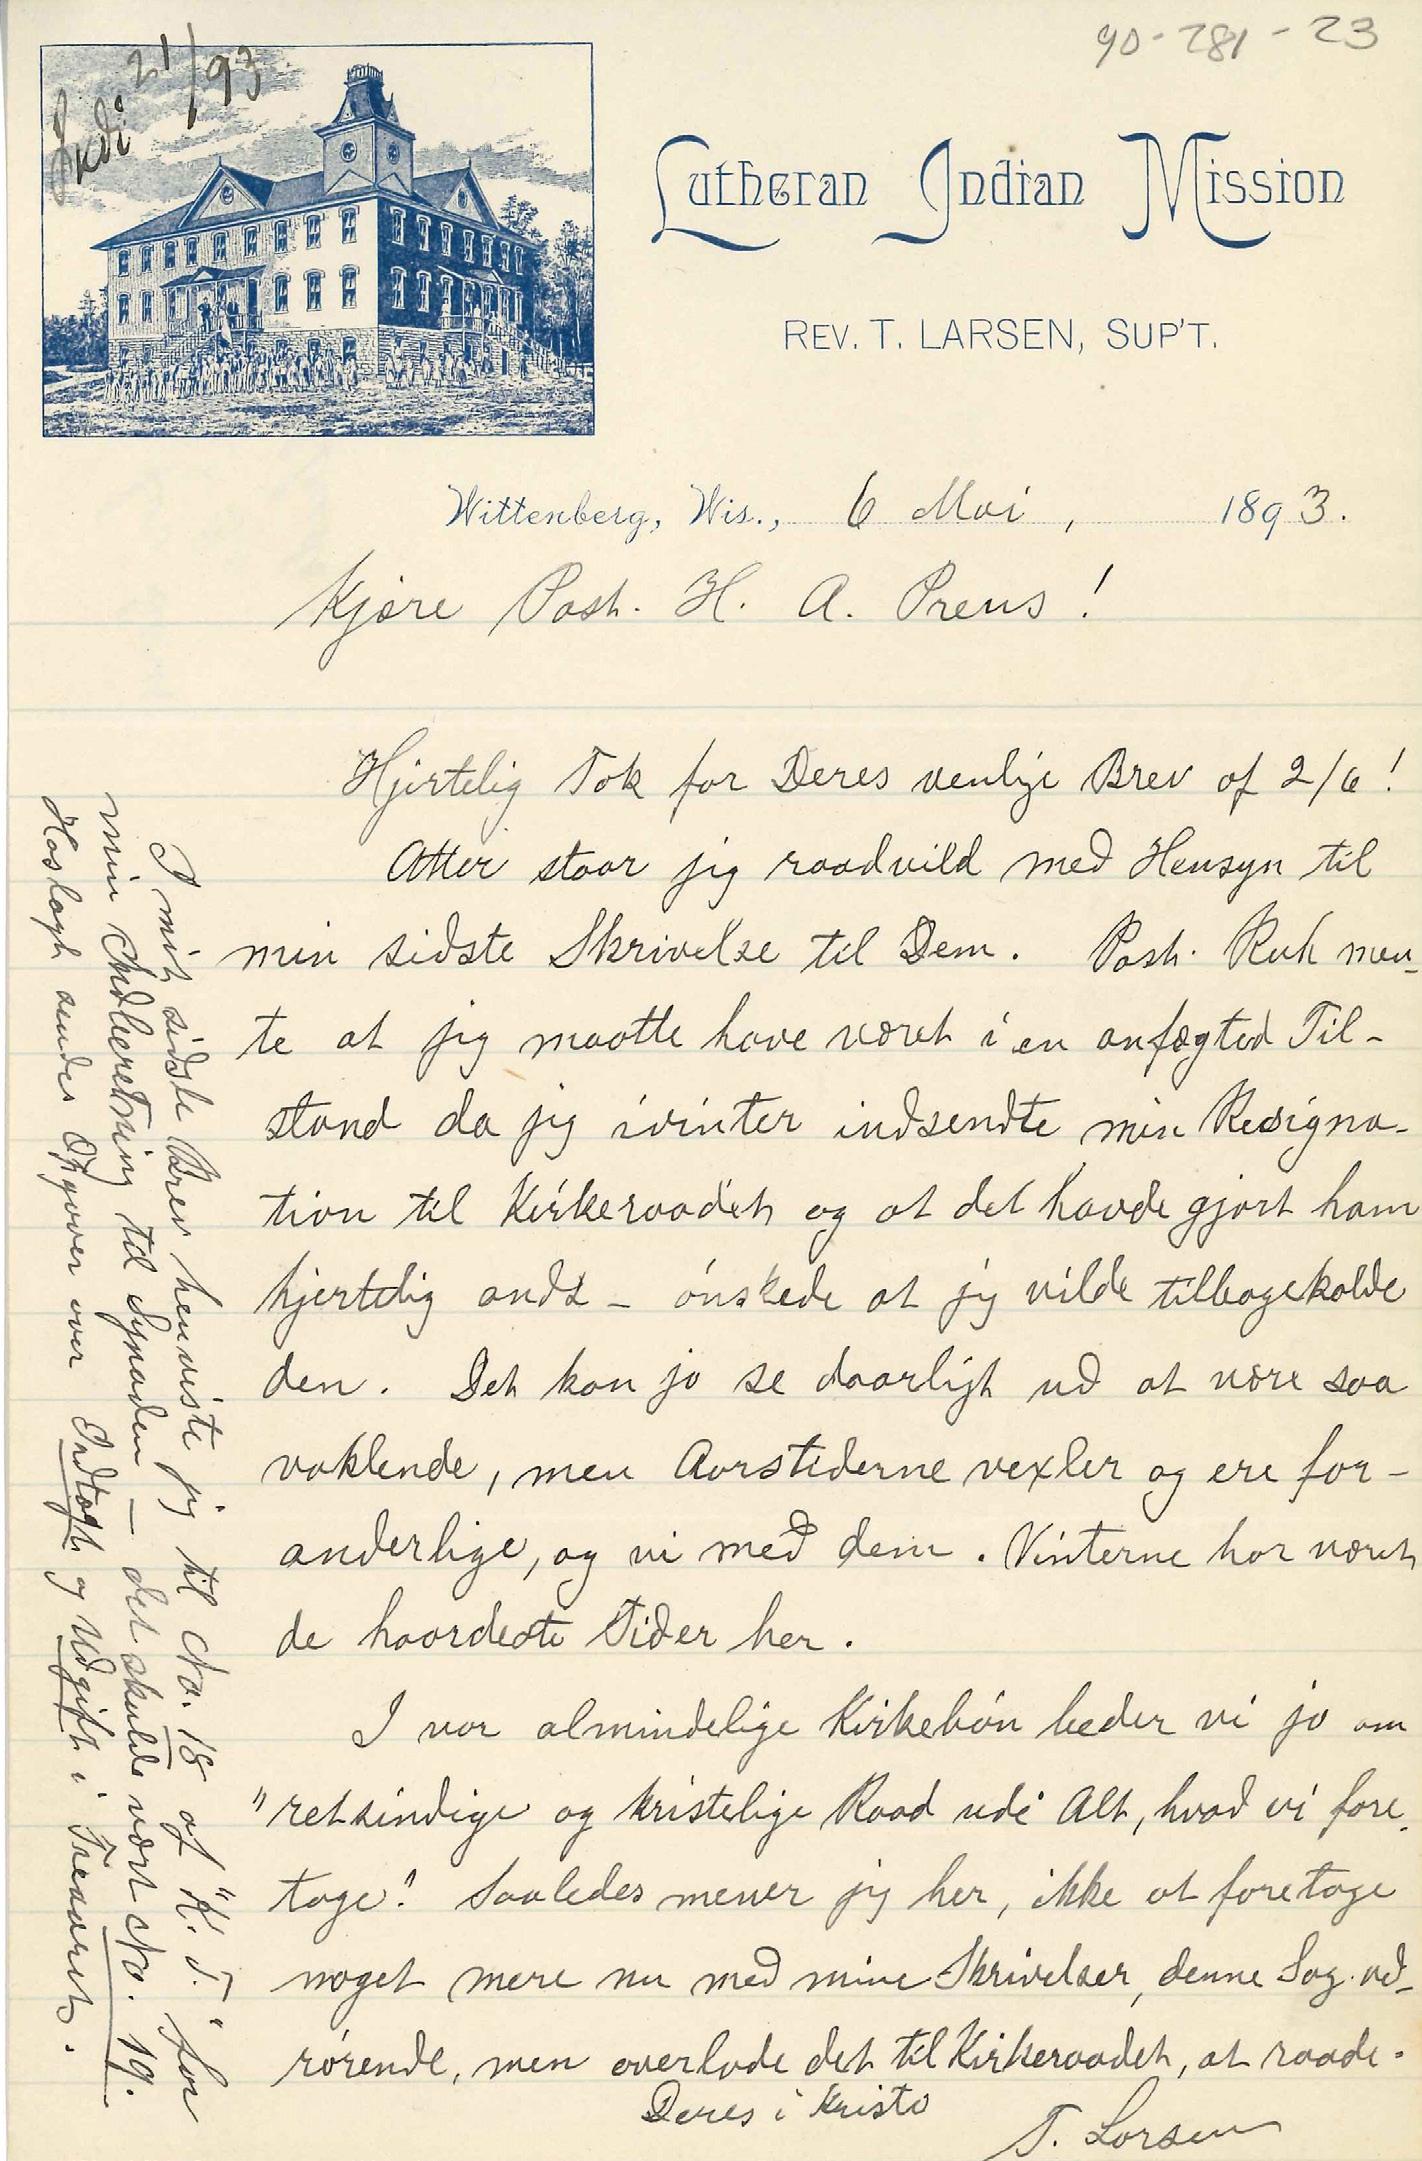 90-281-23
21/93
Lutheran Indian Mission
REV. T. LARSEN, SUP'T.
Wittenberg, Wis., 6 Mai, 1893.
Kjære Past. H. A. Preus!
Hjertelig Tak for Deres venlige Brev af 2/6!
Atter staar jeg raadvild med Hensyn til
min sidste Skrivelse til Dem. Past. Ruh men-
te at jeg maatte have været i en anfægted Til-
stand da jeg ivinter indsendte min Resigna-
tion til Kirkeraadet og at det havde gjort ham
hjertelig ondt - ønskede at jeg vilde tilbagekalde
den. Det kan jo se daarligt ud at være saa
vaklende, men Aarstiderne vexler og ere for-
anderlige, og vi med dem. Vinterne har været
de haardeste Tider her.
I vor almindelige Kirkebøn beder vi jo om
"retsindige og kristelige Raad udi Alt, hvad vi fore-
tage". Saaledes mener jeg her, ikke at foretage
noget mere nu med mine Skrivelser, denne Sag ved-
rørende, men overlade det til Kirkeraadet, at raade.
Deres i Kristo
T. Larsen
I mit sidste Brev henviste jeg til No. 18 af "K. T." for
min Indberetning til Synoden - det skulde vært No. 19.
Hoslagt sendes Opgaver over Indtægt og Udgift i Treaaret.